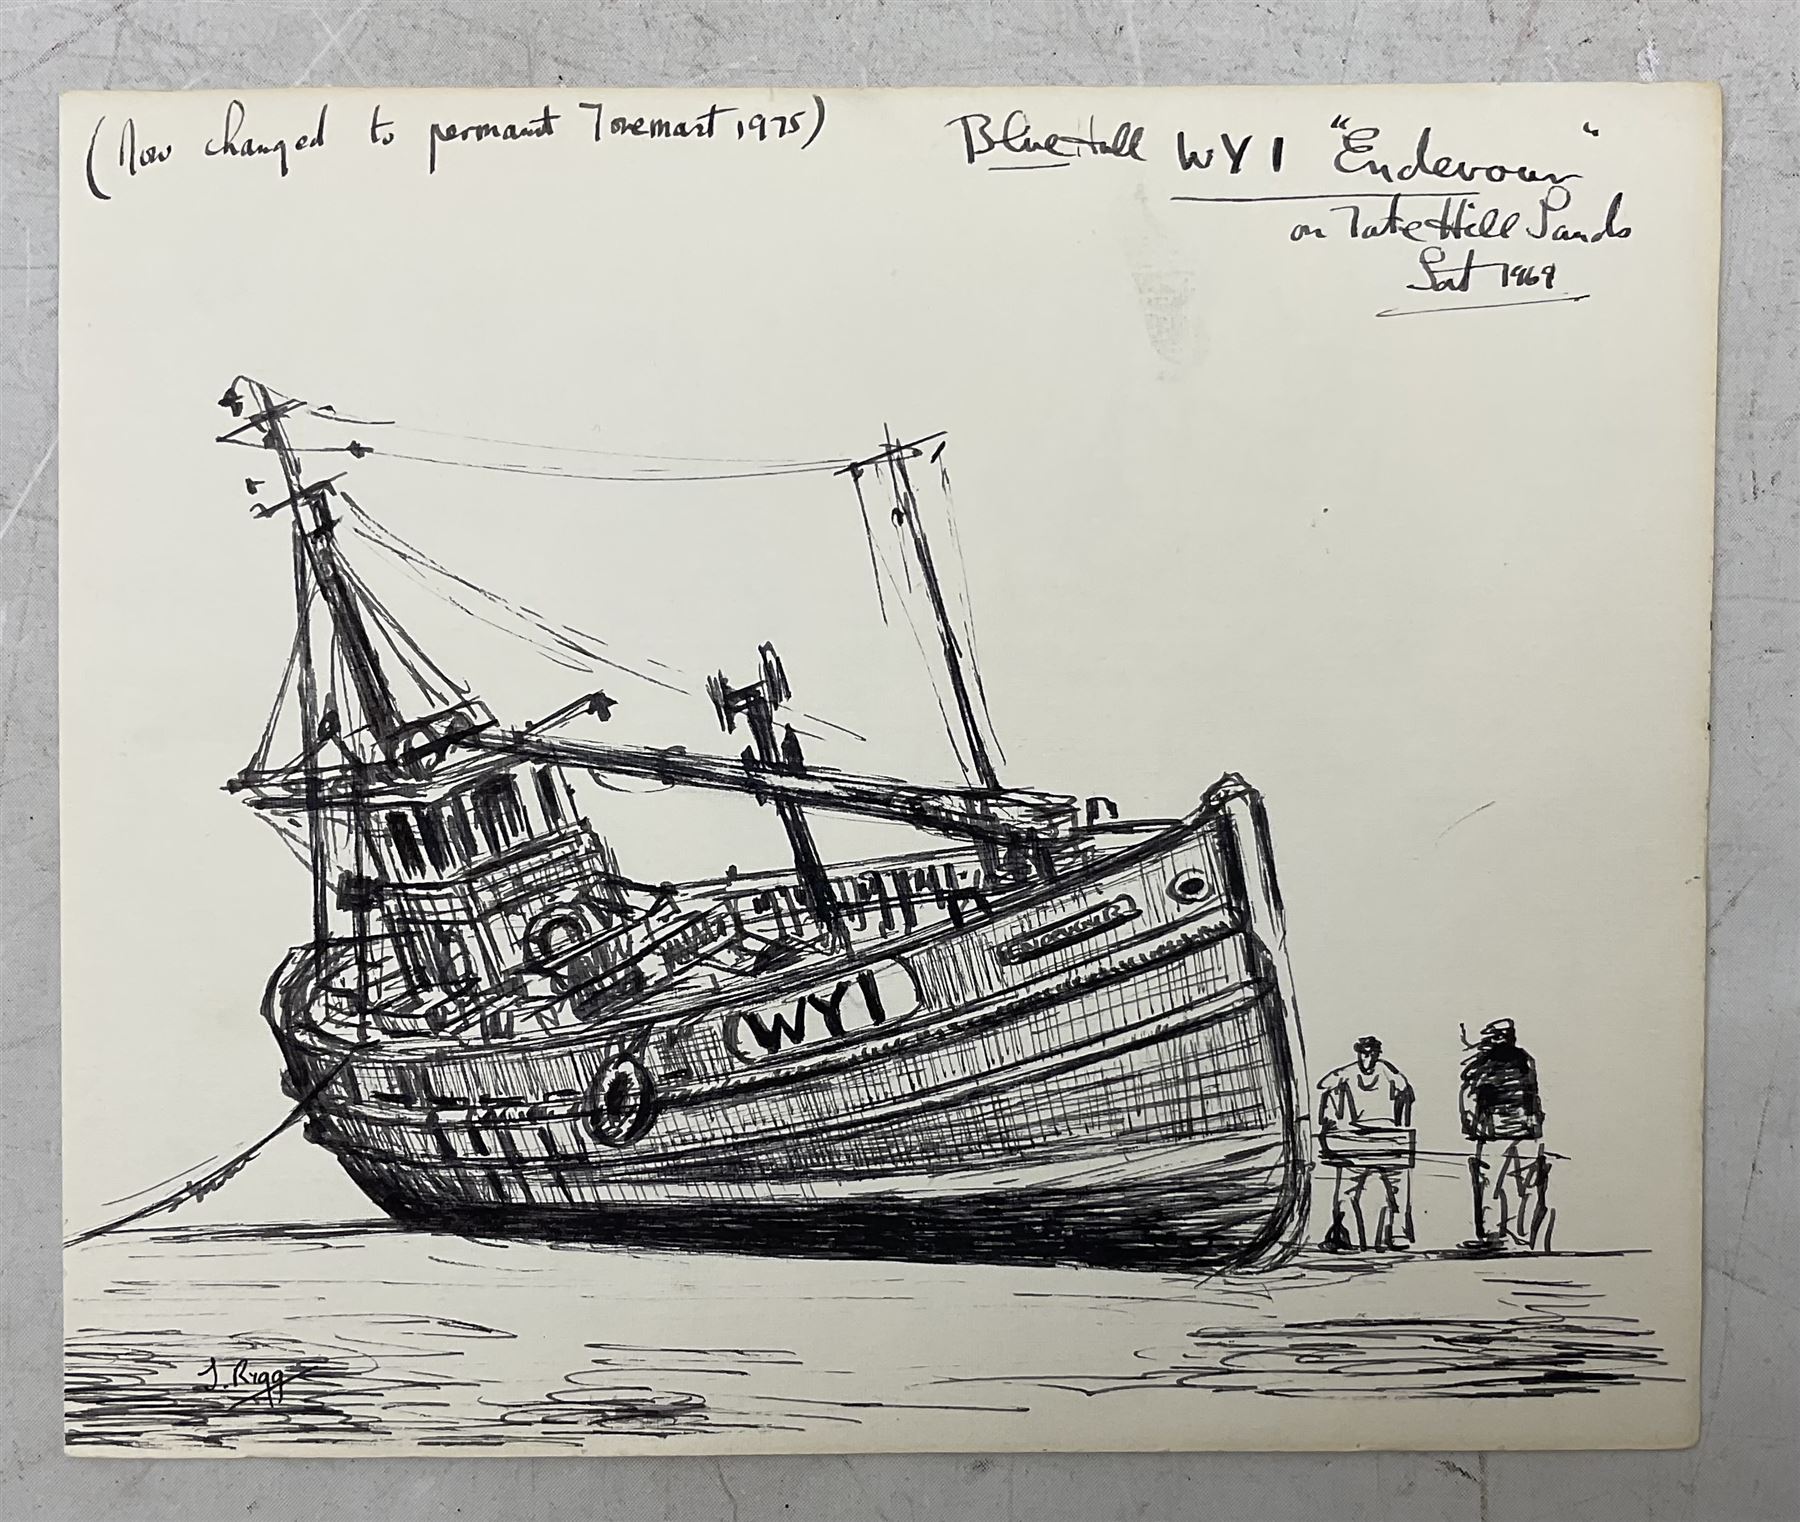 (Now changed to permant Foremast 1975)
Blue Hull WY1 "Endevour"
on Tate Hill Sands
Sat 1969
WY1
J. Rigg